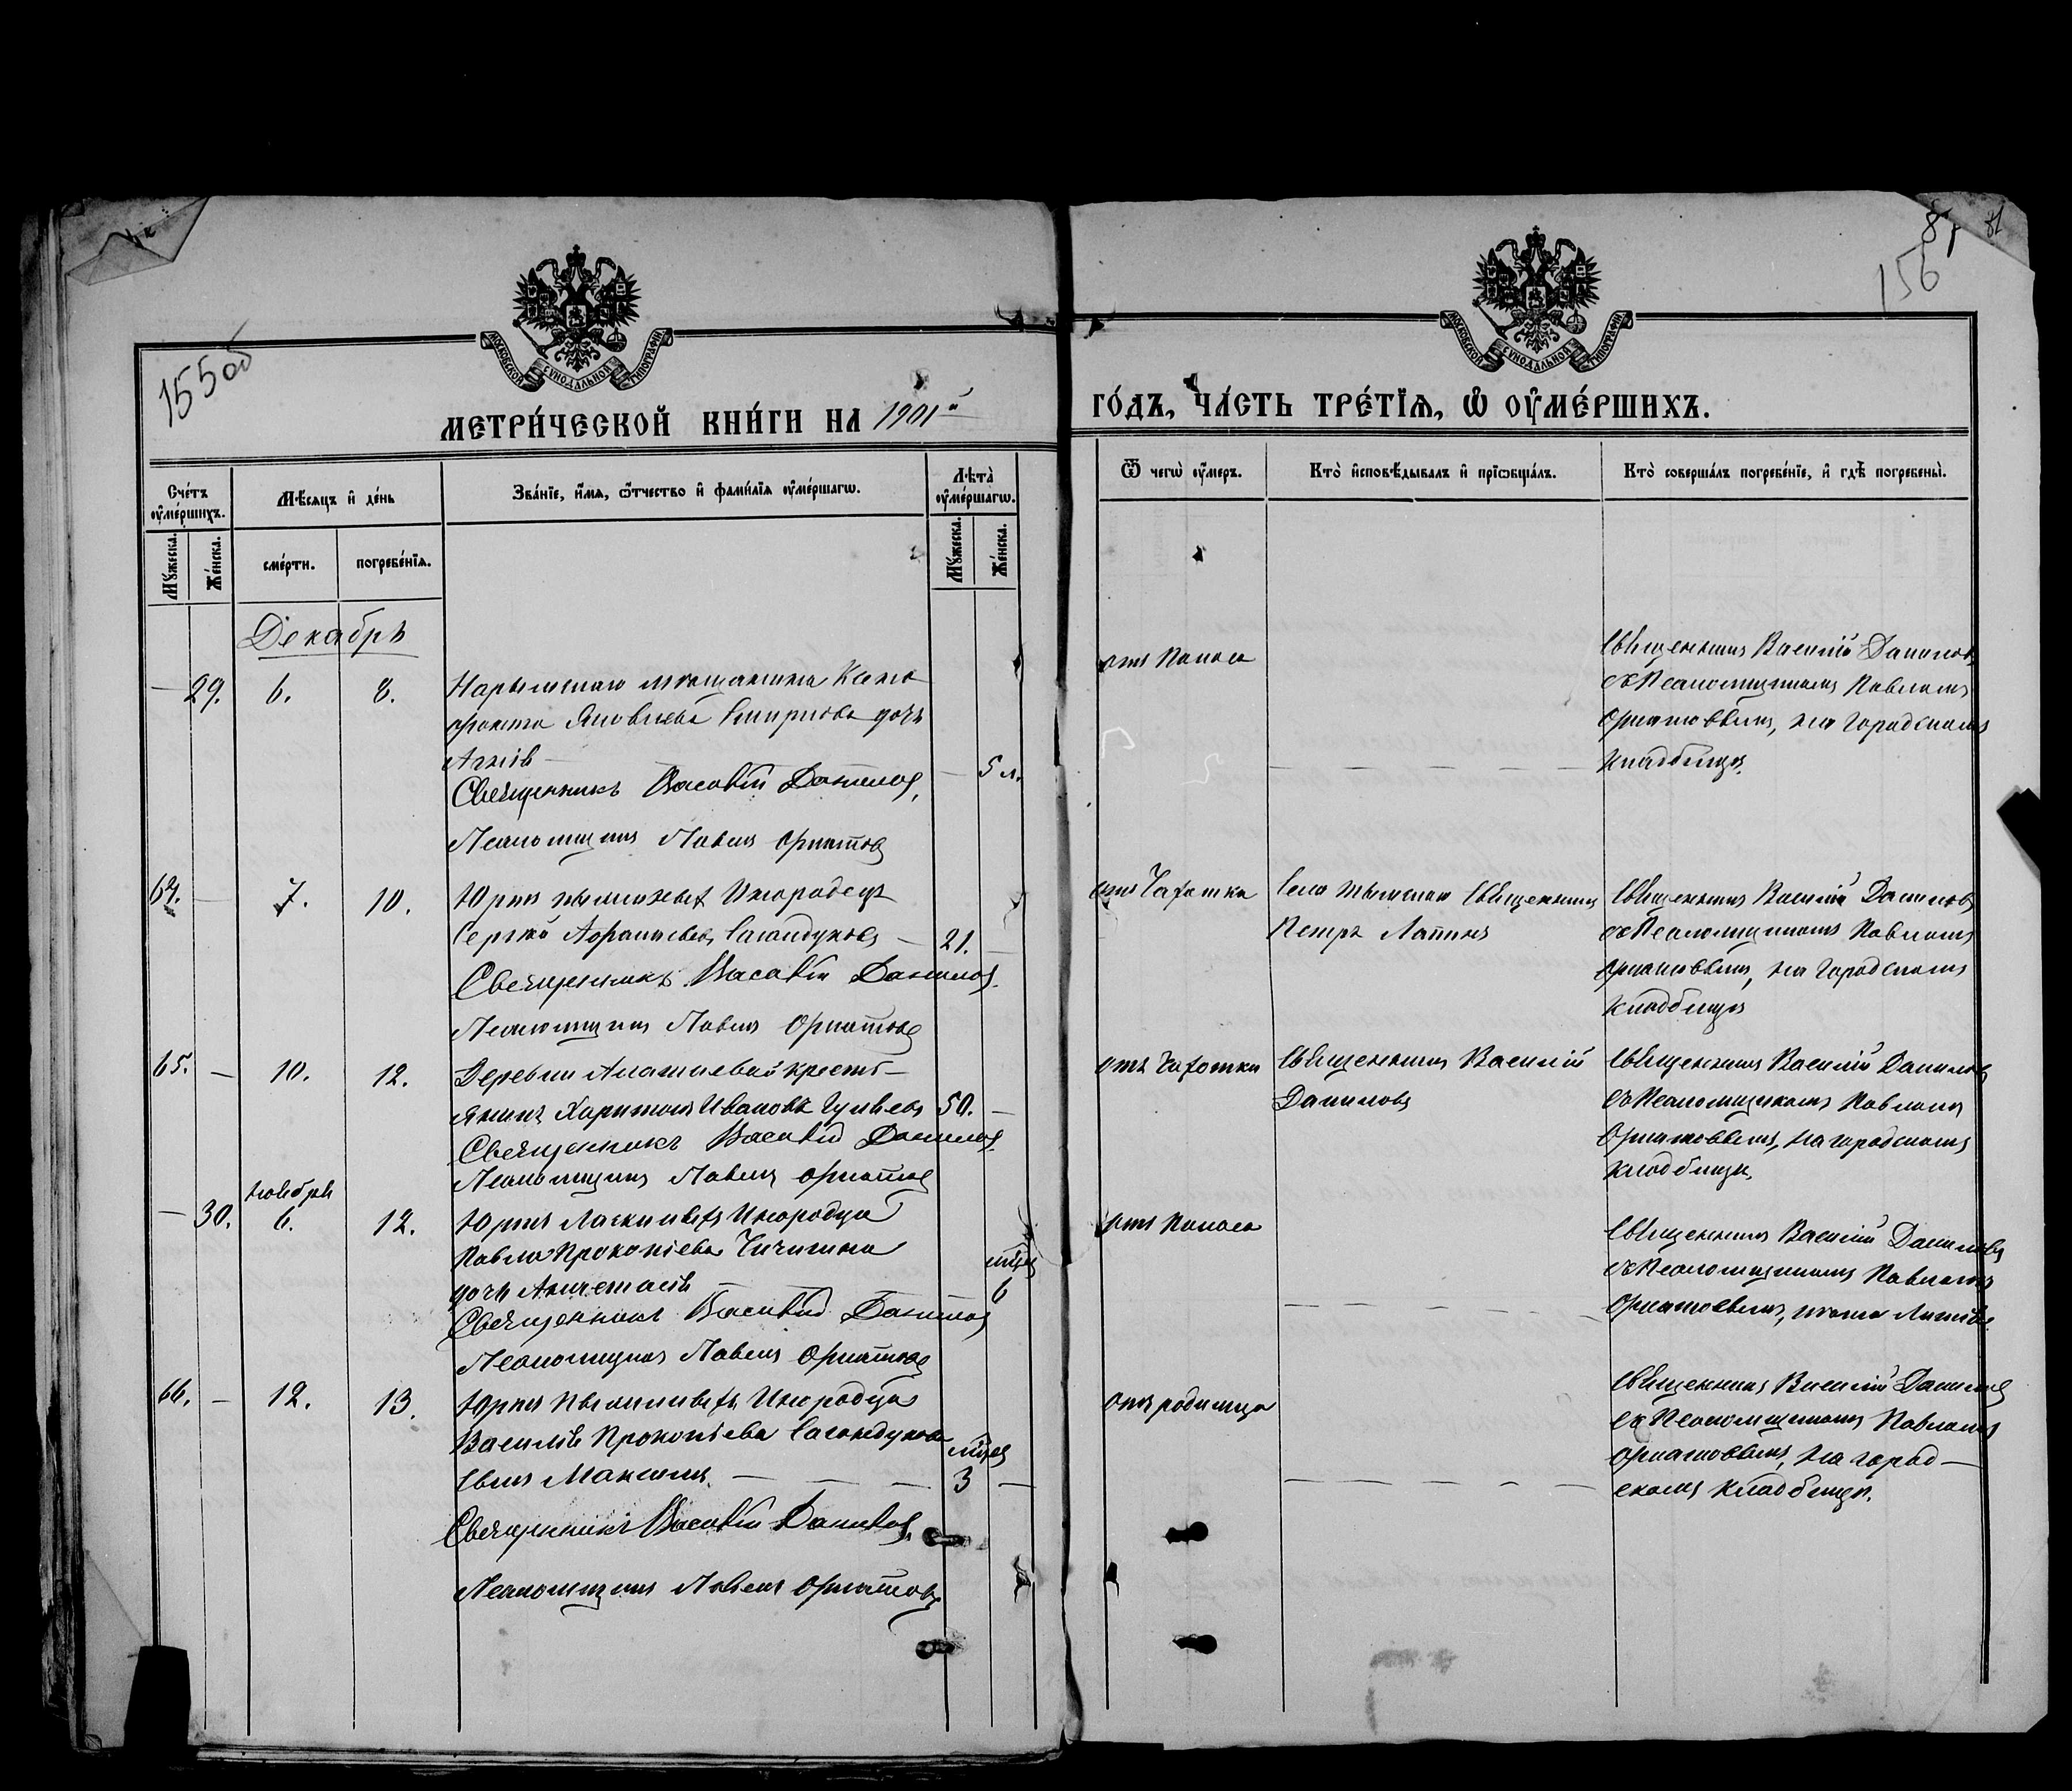 155 об
81
156
МОСКОВСКОЙ СУНОДАЛЬНОЙ ТИПОГРАФІИ
МОСКОВСКОЙ СУНОДАЛЬНОЙ ТИПОГРАФІИ
МЕТРИ́ЧЕСКОЙ КНИ́ГИ НА 1901й
ГО́ДЪ, ЧА́СТЬ ТРЕ́ТЇѦ, Ѽ ОУ҆МЕ́РШИХЪ.
Сче́тъ оу҆ме́ршихъ.
Мꙋ́жеска.
Же́нска.
Мѣ́сѧцъ и҆ де́нь
сме́рти.
погребе́нїѧ.
Зва́нїе, и҆́мѧ, ѻ҆́тчество и҆ фами́лїѧ оу҆ме́ршагѡ.
Лѣта̀ оу҆ме́ршагѡ.
Мꙋ́жеска.
Же́нска.
Ѿ чегѡ̀ оу҆́меръ.
Кто̀ и҆сповѣ́дывалъ и҆ прїѡбща́лъ.
Кто̀ соверша́лъ погребе́нїе, и҆ гдѣ̀ погребены̀.
Декабрь
— 29. 6. 8.
Нарымскаго мѣщанина
Яковлева Смирнова дочь
— 5 л.
Священникъ Василій Даниловъ,
Псаломщикъ Павелъ Орнатовъ
отъ поноса
Священникъ Василій Даниловъ
съ Псаломщикомъ Павломъ
Орнатовымъ, на городскомъ
кладбищѣ.
64. — 7. 10.
Юртъ Инородецъ
Сергѣй Сагандуковъ — 21. —
Священникъ Василій Даниловъ.
Псаломщикъ Павелъ Орнатовъ
отъ Чахотки
Села Тымскаго Священникъ
Петръ Лапинъ
Священникъ Василій Даниловъ
съ Псаломщикомъ Павломъ
Орнатовымъ, на городскомъ
кладбищѣ
65. — 10. 12.
Деревни кресть-
янинъ Харитонъ Ивановъ 50. —
Священникъ Василій Даниловъ.
Псаломщикъ Павелъ Орнатовъ
отъ Чахотки
Священникъ Василій
Даниловъ
Священникъ Василій Даниловъ
съ Псаломщикомъ Павломъ
Орнатовымъ, на городскомъ
кладбищѣ.
Ноября
— 30. 6. 12.
Юртъ Инородца
Павла Прокопіева Чичигина мѣсяц
дочь Анастасія — 6
Священникъ Василій Даниловъ
Псаломщикъ Павелъ Орнатовъ
отъ поноса
Священникъ Василій Даниловъ
съ Псаломщикомъ Павломъ
Орнатовымъ,
66. — 12. 13.
Юртъ Инородца
Василія Прокопіева Сагандукова мѣсяц
сынъ Максимъ — — — 3 —
Священникъ Василій Даниловъ.
Псаломщикъ Павелъ Орнатовъ
отъ родимца
Священникъ Василій Даниловъ
съ Псаломщикомъ Павломъ
Орнатовымъ, на город-
скомъ кладбищѣ.